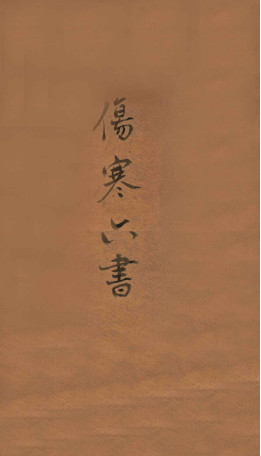 傷寒六書